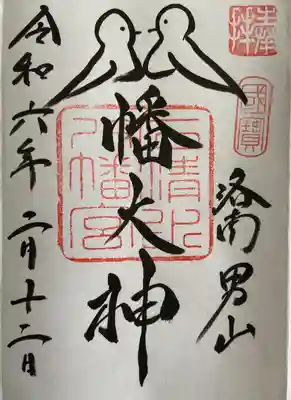 奉拝
国寶
洛南 男山
八幡大神
石清水
八幡宮
令和六年二月十二日